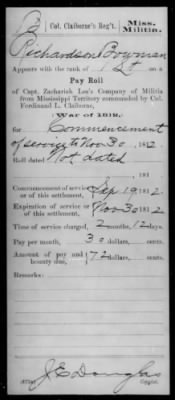 B
Col. Claiborne's Reg't.
Miss. Militia.
Richardson Bowman
Appears with the rank of 1 Lt on a
Pay Roll
of Capt. Zachariah Lea's Company of Militia
from Mississippi Territory commanded by Col.
Ferdinand L. Claiborne,
War of 1812.
for Commencement
of service to Nov. 30 1812
Roll dated Not dated
, 181
Commencement of service or
of this settlement, Sep 19 1812
Expiration of service or
of this settlement, Nov 30 1812
Time of service charged, 2 months, 12 days.
Pay per month, 30 dollars, cents.
Amount of pay and
bounty due, 72 dollars, cents.
Remarks:
J E Douglas
Copyist.